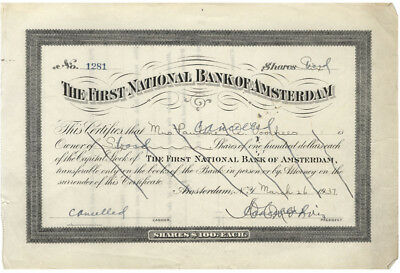 No. 1281 Shares
THE FIRST NATIONAL BANK OF AMSTERDAM
This Certifies that Cancelled is
Owner of Shares of one hundred dollars each
of the Capital Stock of THE FIRST NATIONAL BANK OF AMSTERDAM,
transferable only on the book of the Bank in person or by Attorney on the
surrender of this Certificate.
Amsterdam, N.Y. March 26 1937
Cancelled
CASHIER. PRESIDENT
SHARES $100. EACH.